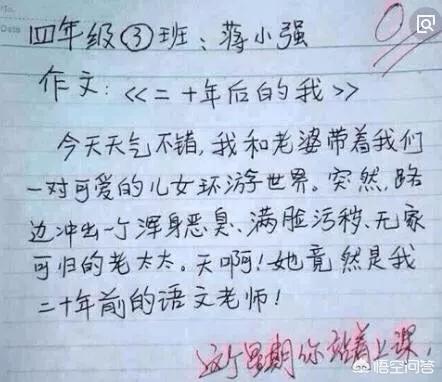 四年级③班：蒋小强
作文：《二十年后的我》
今天天气不错，我和老婆带着我们
一对可爱的儿女环游世界。突然，路
边冲出一个浑身恶臭、满脸污秽、无家
可归的老太太。天啊！她竟然是我
二十年前的语文老师！
这个星期你站着上课，
悟空问答